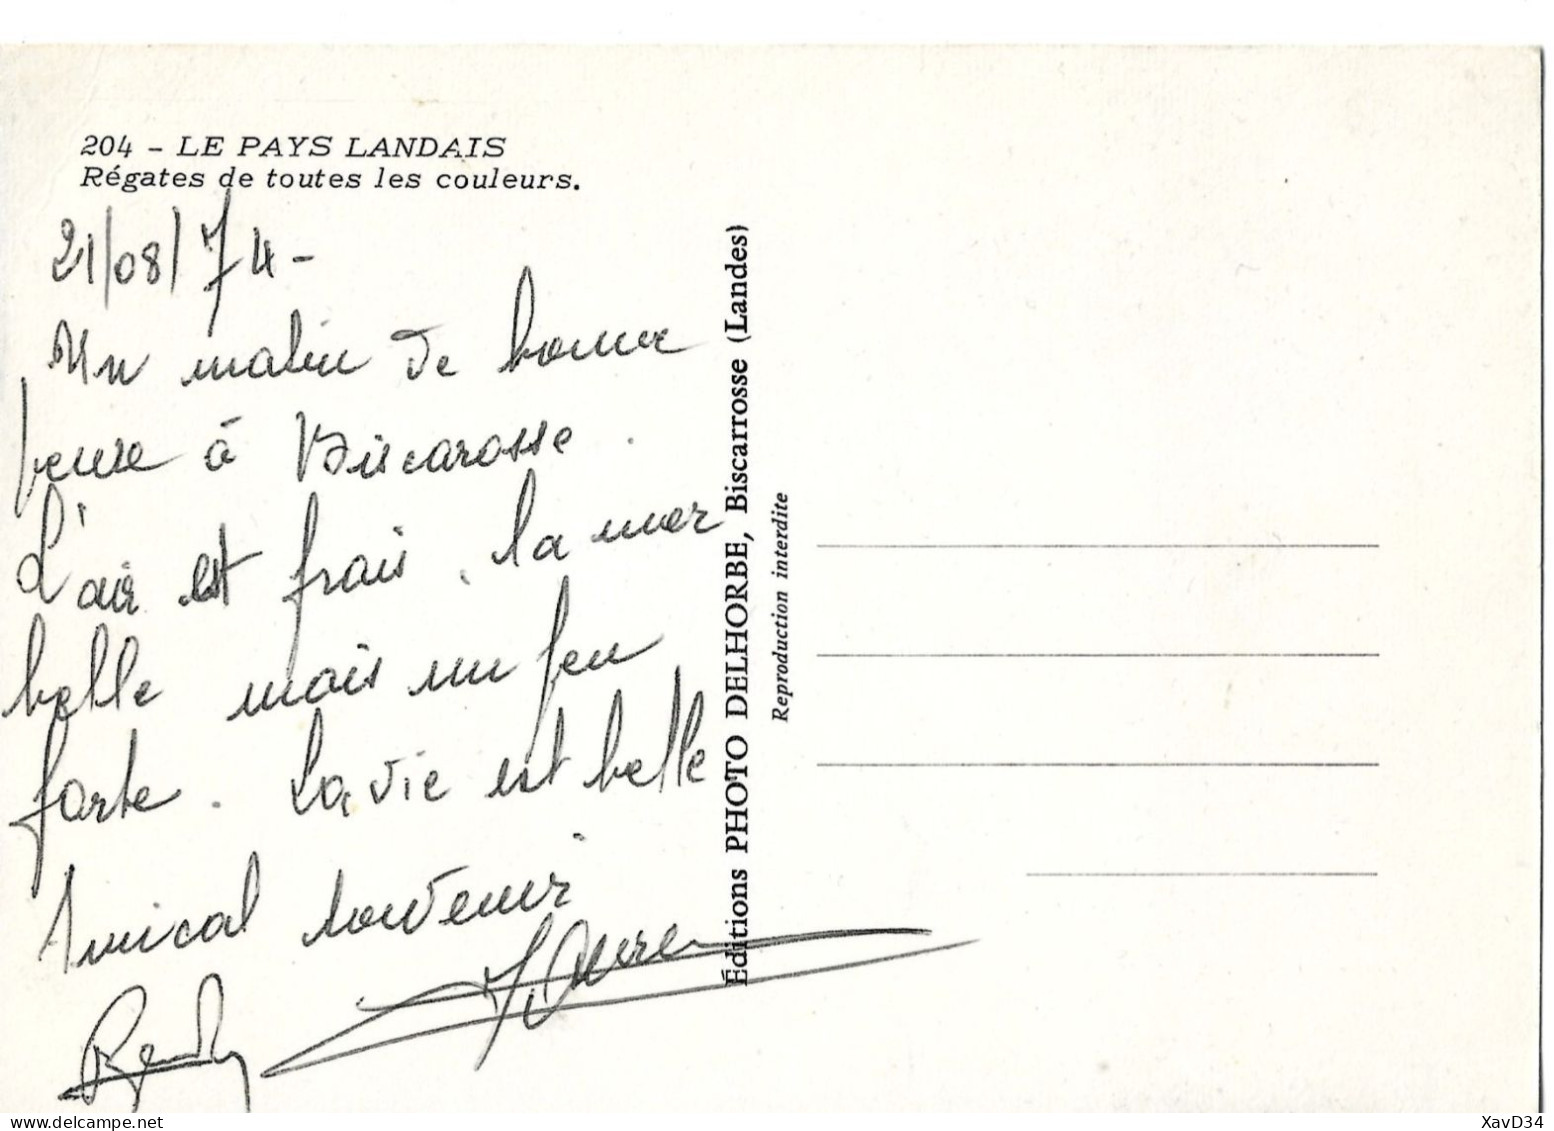 204 - LE PAYS LANDAIS
Régates de toutes les couleurs.
21/08/74 -
Un matin de bonne
heure à Biscarosse.
L'air est frais. la mer
belle mais un peu
forte. La vie est belle
Amical souvenir
Éditions PHOTO DELHORBE, Biscarrosse (Landes)
Reproduction interdite
XavD34